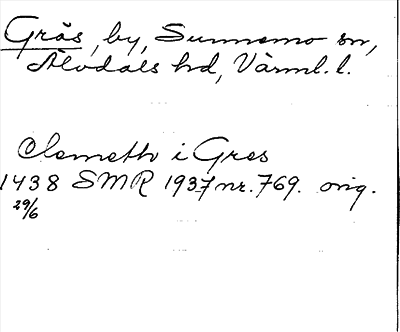 Gräs, by, Sunnemo sn,
Älvdals hd, Värml. l.
Clemeth i Gres
1438 SMR 1937 nr. 769. orig.
29/6